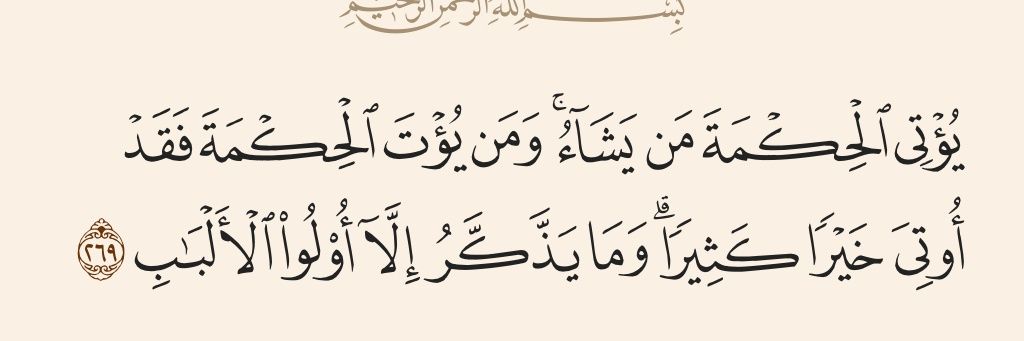 بِسْمِ اللَّهِ الرَّحْمَٰنِ الرَّحِيمِ
يُؤْتِى ٱلْحِكْمَةَ مَن يَشَآءُ ۚ وَمَن يُؤْتَ ٱلْحِكْمَةَ فَقَدْ
أُوتِىَ خَيْرًا كَثِيرًا ۗ وَمَا يَذَّكَّرُ إِلَّآ أُو۟لُوا۟ ٱلْأَلْبَـٰبِ ٢٦٩